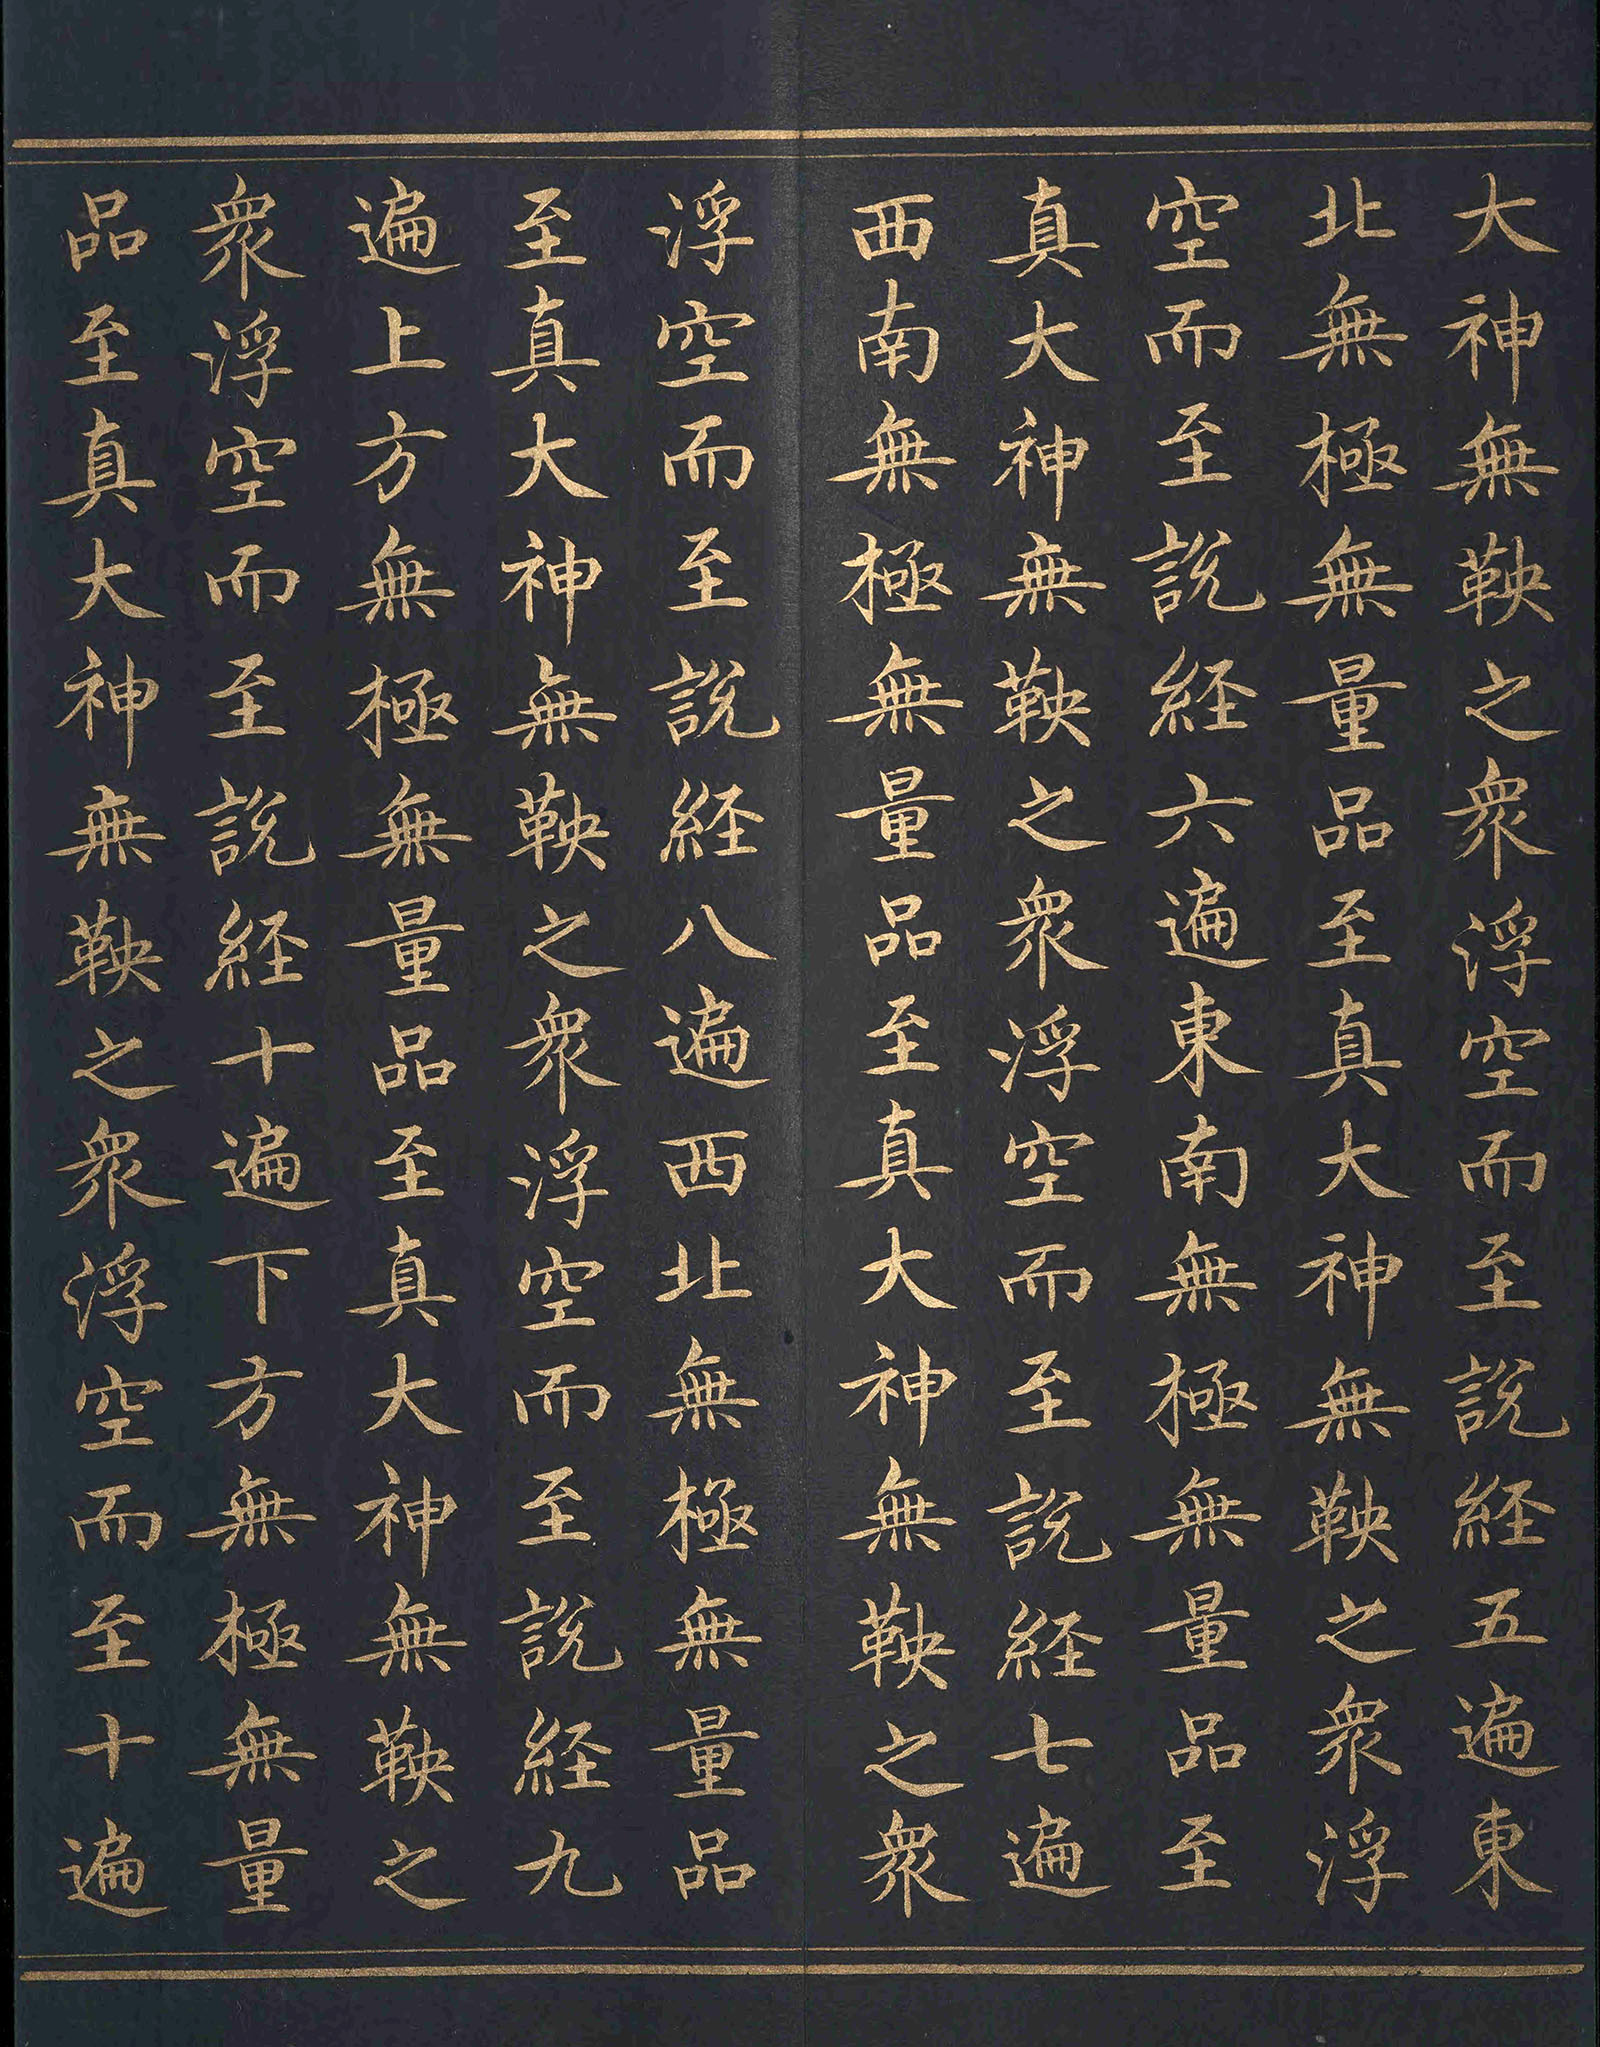 大神無鞅之眾浮空而至說経五遍東
北無極無量品至真大神無鞅之眾浮
空而至說経六遍東南無極無量品至
真大神無鞅之眾浮空而至說経七遍
西南無極無量品至真大神無鞅之眾
浮空而至說経八遍西北無極無量品
至真大神無鞅之眾浮空而至說経九
遍上方無極無量品至真大神無鞅之
眾浮空而至說経十遍下方無極無量
品至真大神無鞅之眾浮空而至十遍